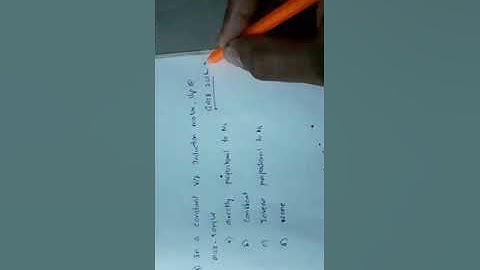 In a constant V/f Induction motor, slip @
max-torque
GATE 2016
a) directly proportional to Ns
b) constant
c) Inverse proportional to Ns
d) none